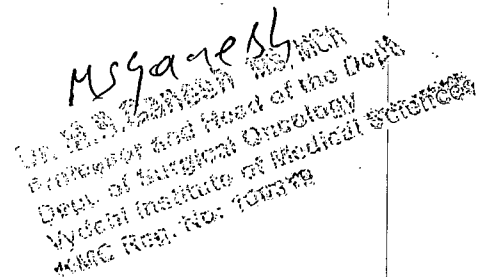 MSGanesh
Dr. M.S. Ganesh MS, MCh
Professor and Head of the Dept.
Dept. of Surgical Oncology
Vydehi Institute of Medical Sciences
KMC Reg. No: